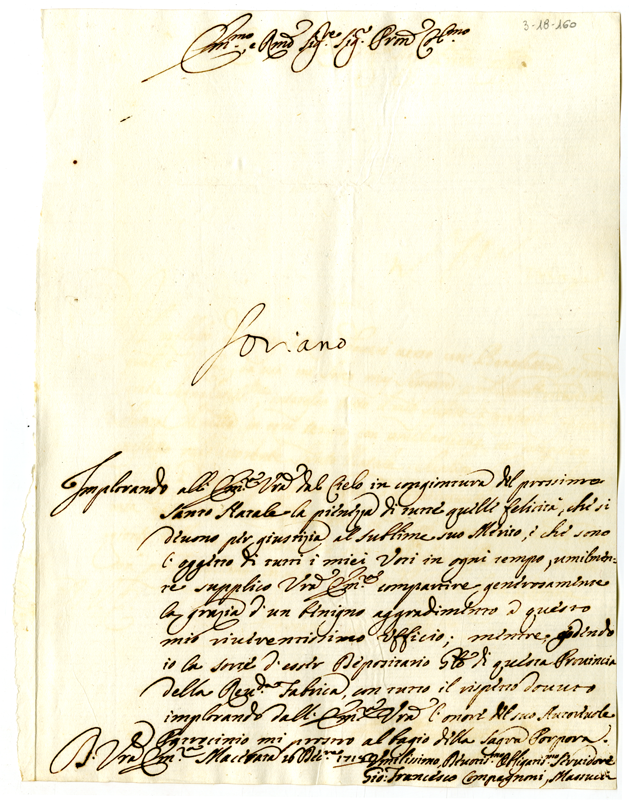 3-18-160
Em.mo e Rmo Sig.re Sig. Pron Col.mo
Soriano
Implorando all' Em.za Vra dal Cielo in congiontura del prossimo
Santo Natale la pienezza di tutte quelle felicità, che si
devono per giustizia al sublime suo Merito, e che sono
l'oggetto di tutti i miei Voti in ogni tempo, umilmen-
te supplico Vra Em.za compartire generosamente
la grazia d'un benigno aggradimento à questo
mio riverentissimo Officio; mentre godendo
io la sorte d'esser Depositario Gle di questa Provincia
della Reu.da Fabrica, con tutto il rispetto dovuto
implorando dall' Em.za Vra l'onore del suo Autorevole
Patrocinio mi prostro al bagio della Sagra Porpora.
D. Vra Em.za Macerata 16 Xbre Umilissimo, Devot.mo Obligatis.mo Servidore
Gio: Francesco Compagnoni,